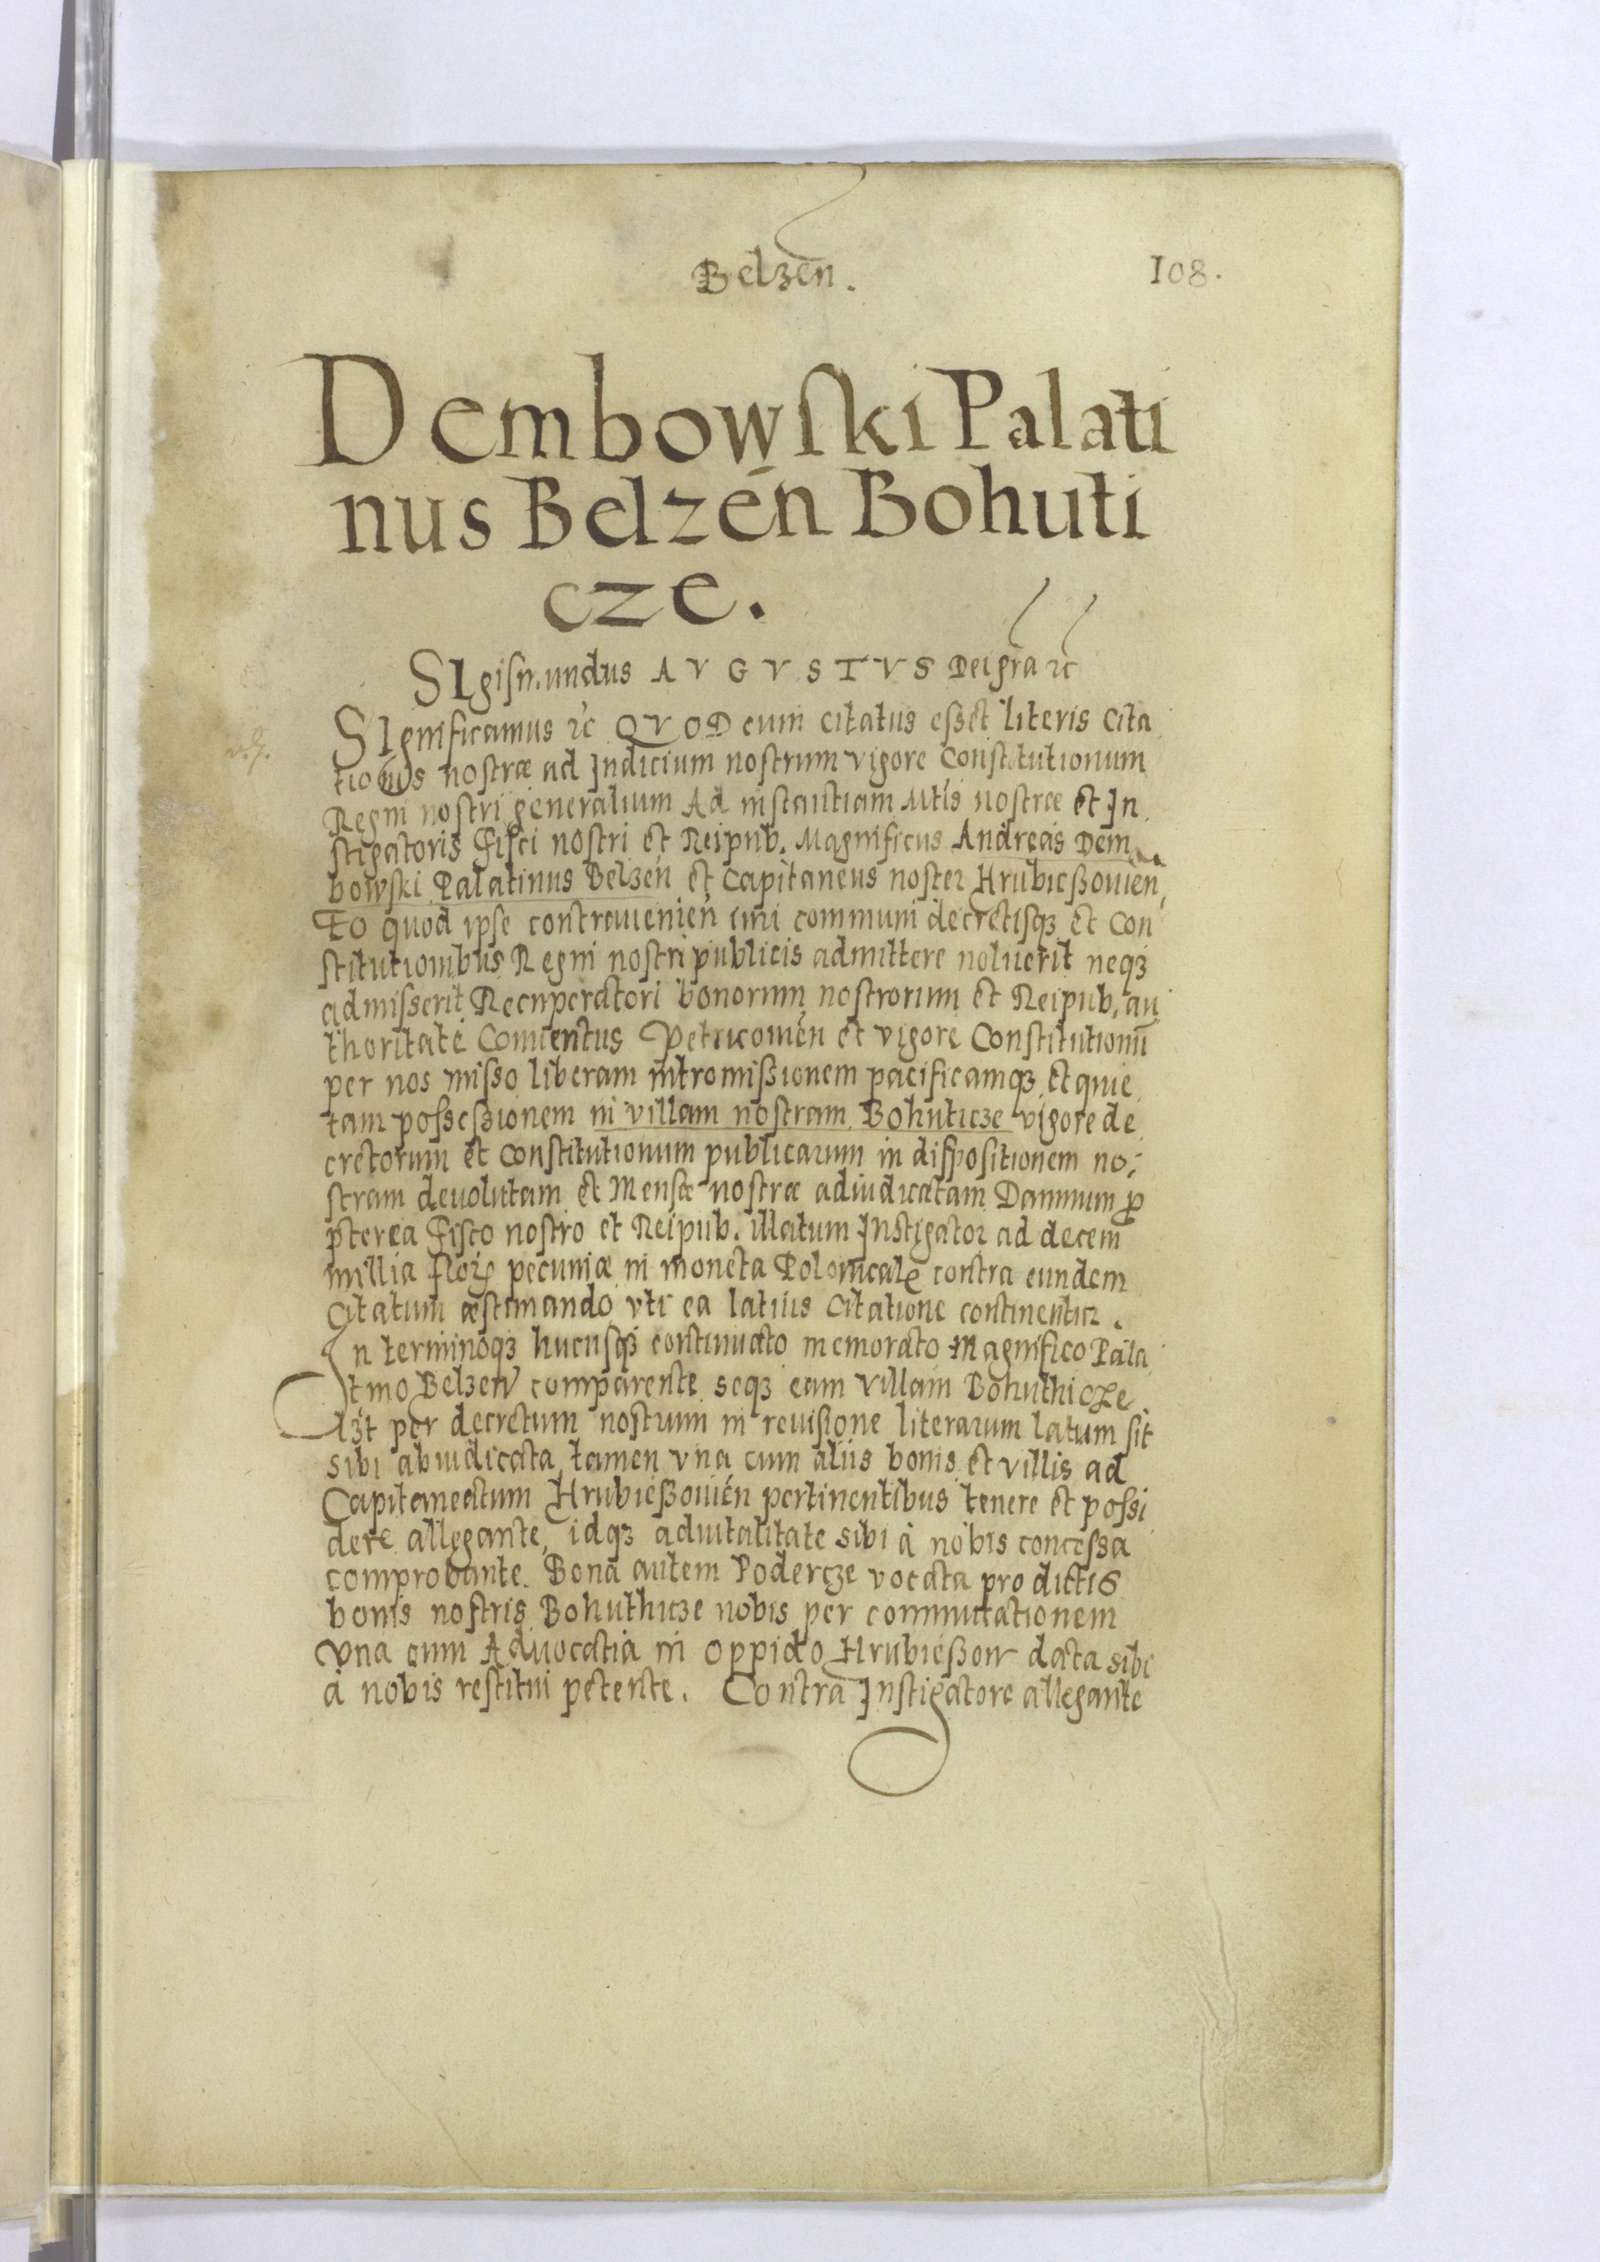 Belzen.
108.
Dembowski Palati
nus Belzen̄ Bohuti
cze.
SIgismundus AVGVSTVS Dei gr̄a ꝛc̄
SIgnificamus ꝛc̄ QVOD cum citatus esset literis Cita
tionis nostræ ad Iudicium nostrum vigore Constitutionum
Regni nostri generalium Ad instantiam Mtis nostræ et In
stigatoris Fisci nostri et Reipub. Magnificus Andreas Dem
bowski Palatinus Belzen̄ et Capitaneus noster Hrubieszouien̄
Eo quod ipse contrauenien̄ iuri communi decretisqꝫ et Con
stitutionibus Regni nostri publicis admittere noluerit neqꝫ
admisserit Recuperatori bonorum nostrorum et Reipub. au
thoritate Conuentus Petricouien̄ et vigore Constitutionū
per nos misso liberam intromissionem pacificamqꝫ et quie
tam possessionem in villam nostram Bohuticze vigore de
cretorum et Constitutionum publicarum in dispositionem no:
stram deuolutam et Mensæ nostræ adiudicatam Damnum ꝓ
pterea Fisco nostro et Reipub. illatum Instigator ad decem
millia floꝝ pecuniæ in moneta Polonicalꝭ contra eundem
Citatum æstimando vti ea latius Citatione continentur.
In terminoqꝫ hucusqꝫ continuato memorato Magnifico Pala
tino Belzen̄ comparente seqꝫ eam villam Bohuthicze
lꝫt per decretum nostrum in reuisione literarum latum sit
sibi abiudicata tamen vna cum aliis bonis et villis ad
Capitaneatum Hrubieszouien̄ pertinentibus tenere et possi
dere allegante, idqꝫ aduitalitate sibi à nobis concessa
comprobante. Bona autem Podercze vocata pro dictis
bonis nostris Bohuthicze nobis per commutationem
vna cum Aduocatia in oppido Hrubieszow data sibi
à nobis restitui petente. Contra Instigatore allegante